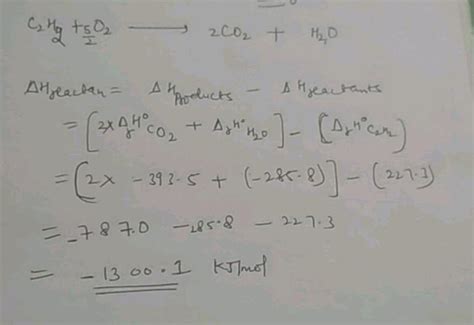 C2H2 + 5/2 O2 ⟶ 2CO2 + H2O
ΔHreaction = ΔHProducts - ΔHreactants
= [2xΔfH°CO2 + ΔfH°H2O] - [ΔfH°C2H2]
= [2x -393.5 + (-285.8)] - (227.3)
= -787.0 - 285.8 - 227.3
= -1300.1 KJ/mol